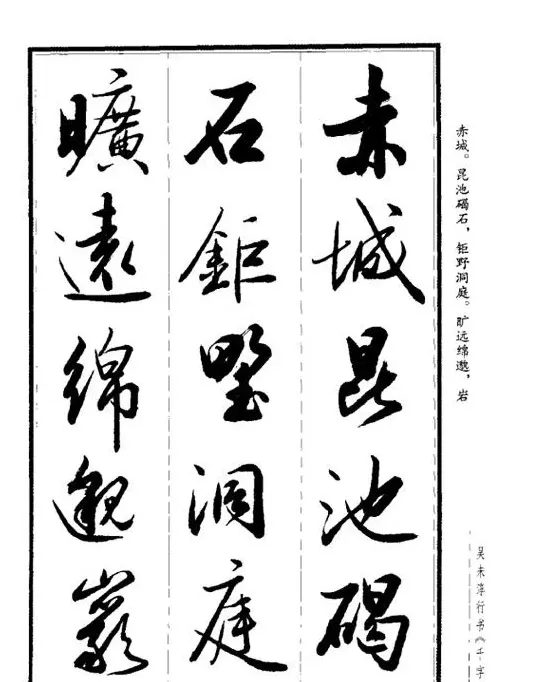 赤城昆池碣
石鉅野洞庭
曠遠綿邈巖
赤城。昆池碣石，钜野洞庭。旷远绵邈，岩
吴未淳行书《千字